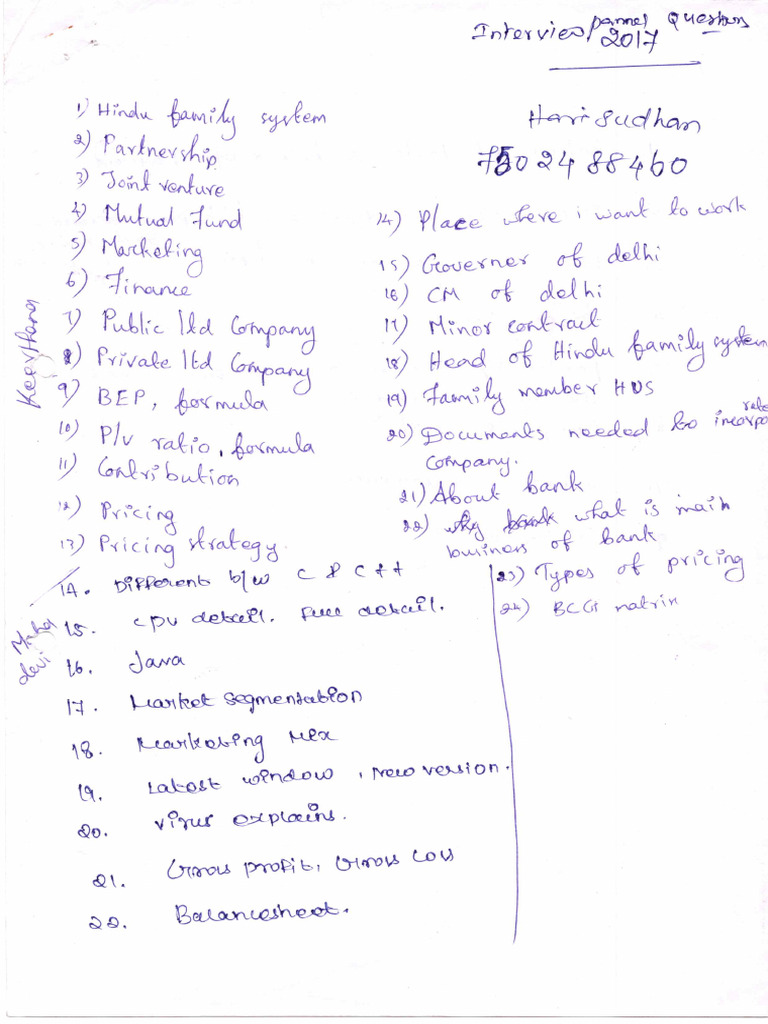 Interview pannel Questions
2017
Hari sudhan
7502488460
1) Hindu family system
2) Partnership
3) Joint venture
4) Mutual Fund
5) Marketing
6) Finance
7) Public ltd Company
8) Private ltd Company
9) BEP, formula
10) P/v ratio, formula
11) Contribution
12) Pricing
13) Pricing strategy
Keerthana
14) Place where i want to work
15) Governer of delhi
16) CM of delhi
17) Minor contract
18) Head of Hindu family system
19) Family member HUS
20) Documents needed to incorporate
company.
21) About bank
22) what is main
business of bank
23) Types of pricing
24) BCG matrix
14. Different b/w C & C++
15. CPU detail. Full detail.
16. Java
17. Market Segmentation
18. Marketing Mix
19. Latest window, New version.
20. Virus explains.
21. Gross profit, Gross Loss
22. Balancesheet.
Maha
devi